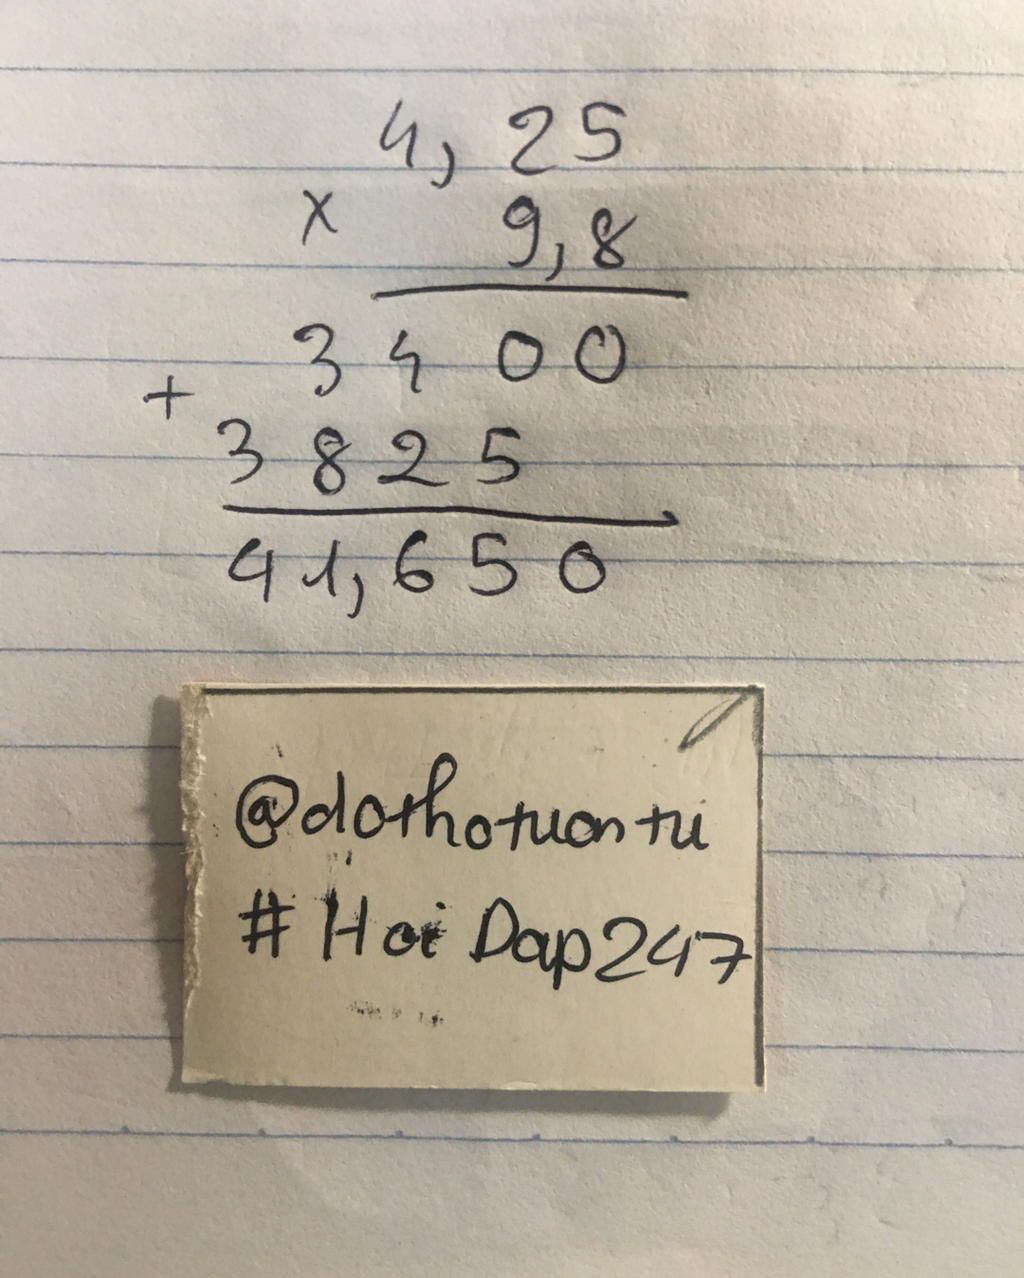 4,25
x 9,8
3400
+
3825
41,650
@dothotuantu
# Hoi Dap247